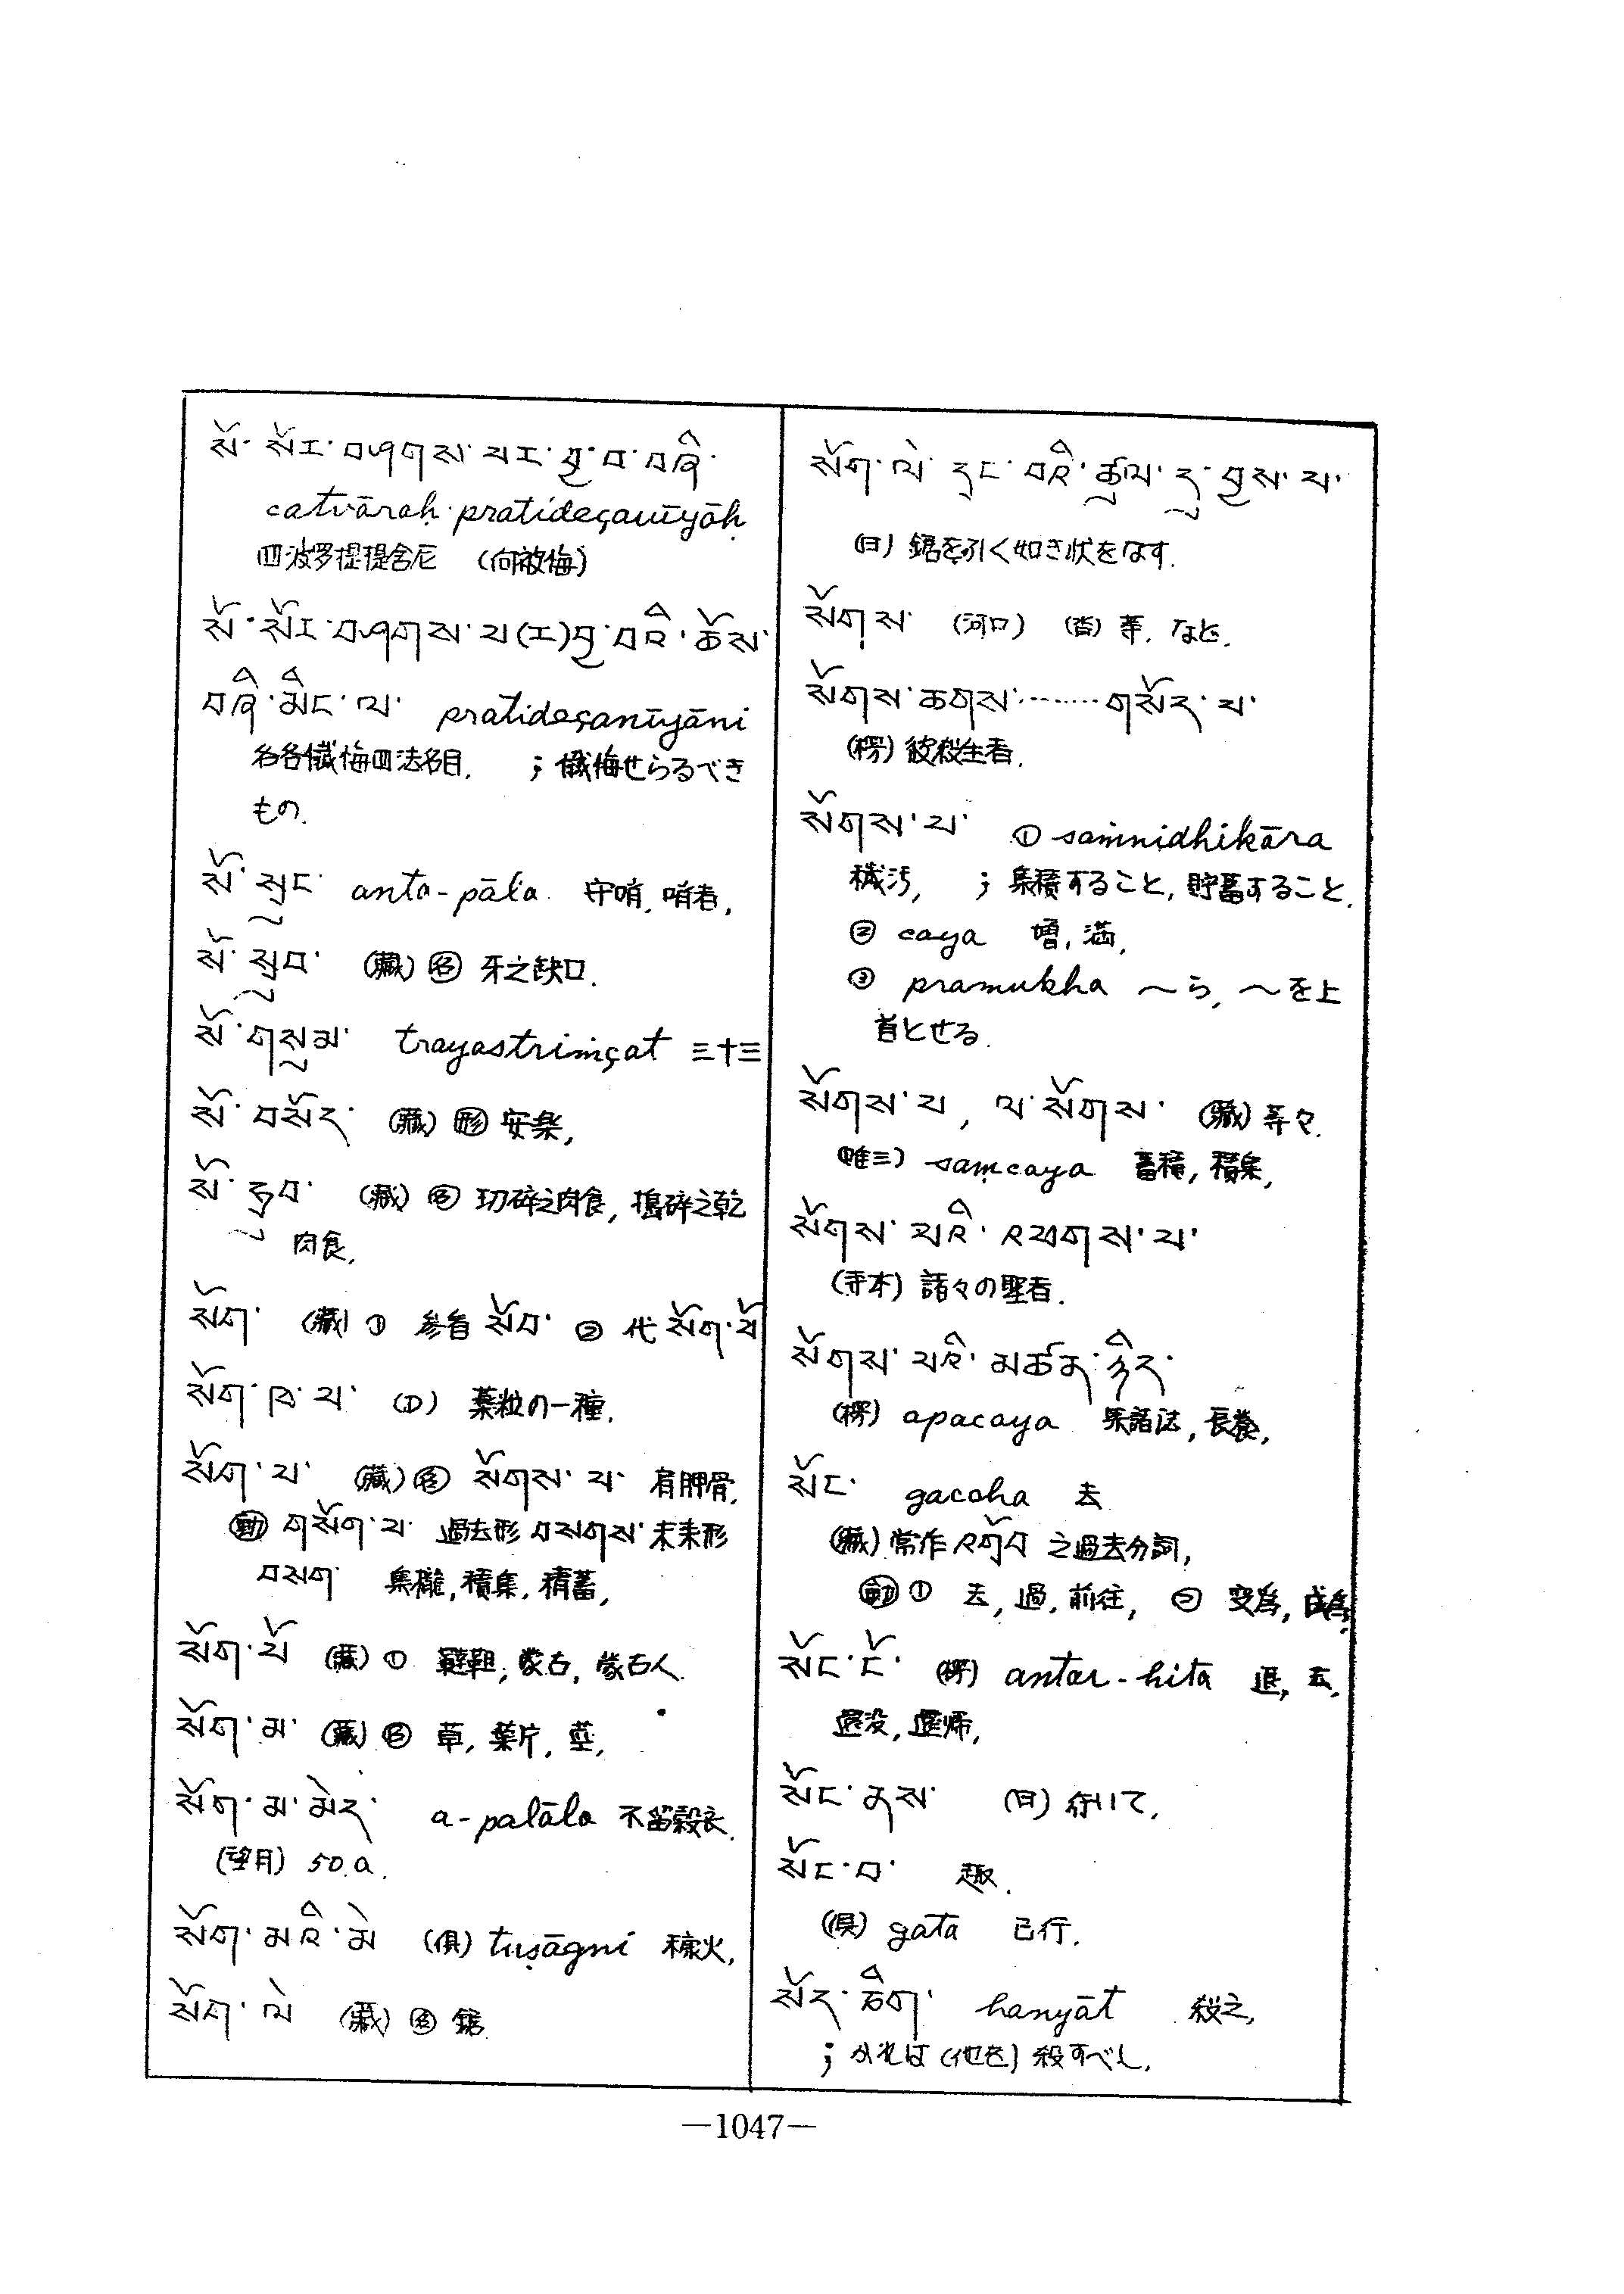 སོ་སོར་བཤགས་པར་བྱ་བ་བཞི་
catvāraḥ pratideçanīyāḥ
四波罗提提舎尼 (向彼悔)
སོ་སོར་བཤགས་པ(ར)བྱ་བའི་ཆོས་
བཞི་མིང་ལ་ pratideçanīyāni
各各懺悔四法名目. ; 懺悔せらるべき
もの.
སོ་སྲུང་ anta-pāla 守哨, 哨者,
སོ་སྲུབ་ (藏) 名 牙之缺口.
སོ་གསུམ་ trayastriṁçat 三十三
སོ་བསོད་ (藏) 形 安楽,
སོ་ཧྲུབ་ (藏) 名 切碎之肉食, 搗碎之乾
肉食,
སོག་ (藏) ① 參看 སོབ་ ② 代 སོག་པོ
སོག་ཁ་པ་ (D) 葉粒の一種.
སོག་པ་ (藏) 名 སོགས་པ་ 肩胛骨,
動 གསོག་པ་ 過去形 བསགས་ 未来形
བསག་ 集攏, 積集, 積蓄,
སོག་པོ (藏) ① 韃靼, 蒙古, 蒙古人.
སོག་མ་ (藏) 名 草, 葉片, 莖,
སོག་མ་མེད་ a-palāla 不留穀衣
(望月) 50.a.
སོག་མའི་མེ (俱) tuṣāgni 稼火,
སོག་ལེ (藏) 名 鋸
སོག་ལེ་དྲང་བའི་ཚུལ་དུ་བྱས་པ་
(日) 鋸を引く如き状をなす.
སོགས་ (河口) 等, など.
སོགས་ཆགས་……གསོད་པ་
(楞) 彼殺生者.
སོགས་པ་ ① saṁnidhikāra
穢汚, ; 集積すること, 貯蓄すること.
② caya 增, 満,
③ pramukha 〜ら, 〜を上
首とせる.
སོགས་པ, ལ་སོགས་ (藏) 等々.
(唯三) saṃcaya 蓄積, 積集,
སོགས་པའི་འཕགས་པ་
(寺本) 諸々の聖者.
སོགས་པའི་མཚན་ཉིད་
(楞) apacaya 長養,
སོང་ gaccha 去
(藏) 常作 འགྲོབ 之過去分詞,
動 ① 去, 過, 前往, ② 变為, 成為,
སོང་ངོ་ (楞) antar-hita 退, 去,
還没, 還帰,
སོང་ནས་ (日) 行いて,
སོང་བ་ 趣.
(俱) gata 已行.
སོད་ཅིག་ hanyāt 殺之,
; かれは (他を) 殺すべし.
—1047—